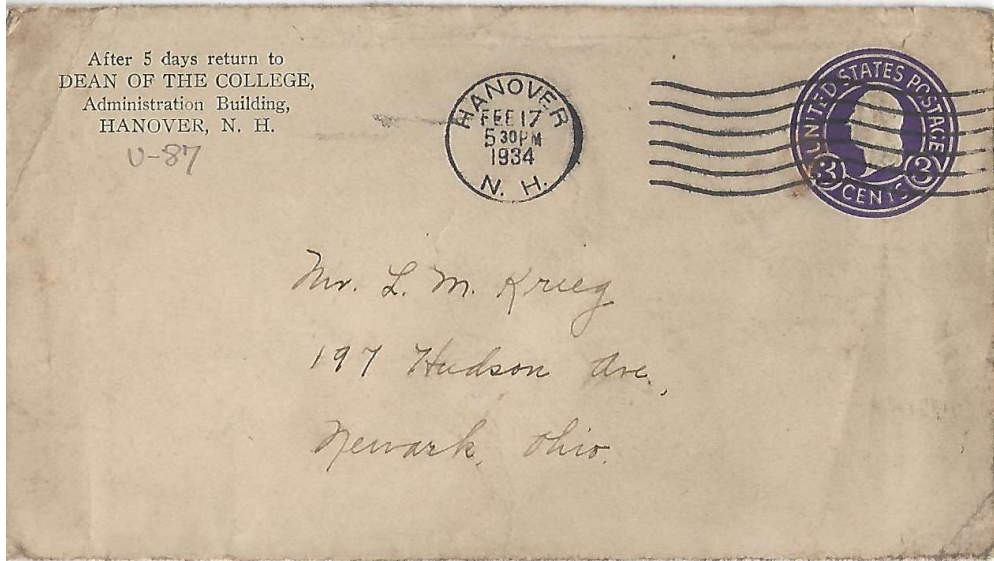 After 5 days return to
DEAN OF THE COLLEGE,
Administration Building,
HANOVER, N. H.
U-87
HANOVER
FEB 17
5 30 PM
1934
N. H.
UNITED STATES POSTAGE
3 CENTS 3
Mr. L. M. Krieg
197 Hudson Ave.,
Newark, Ohio.